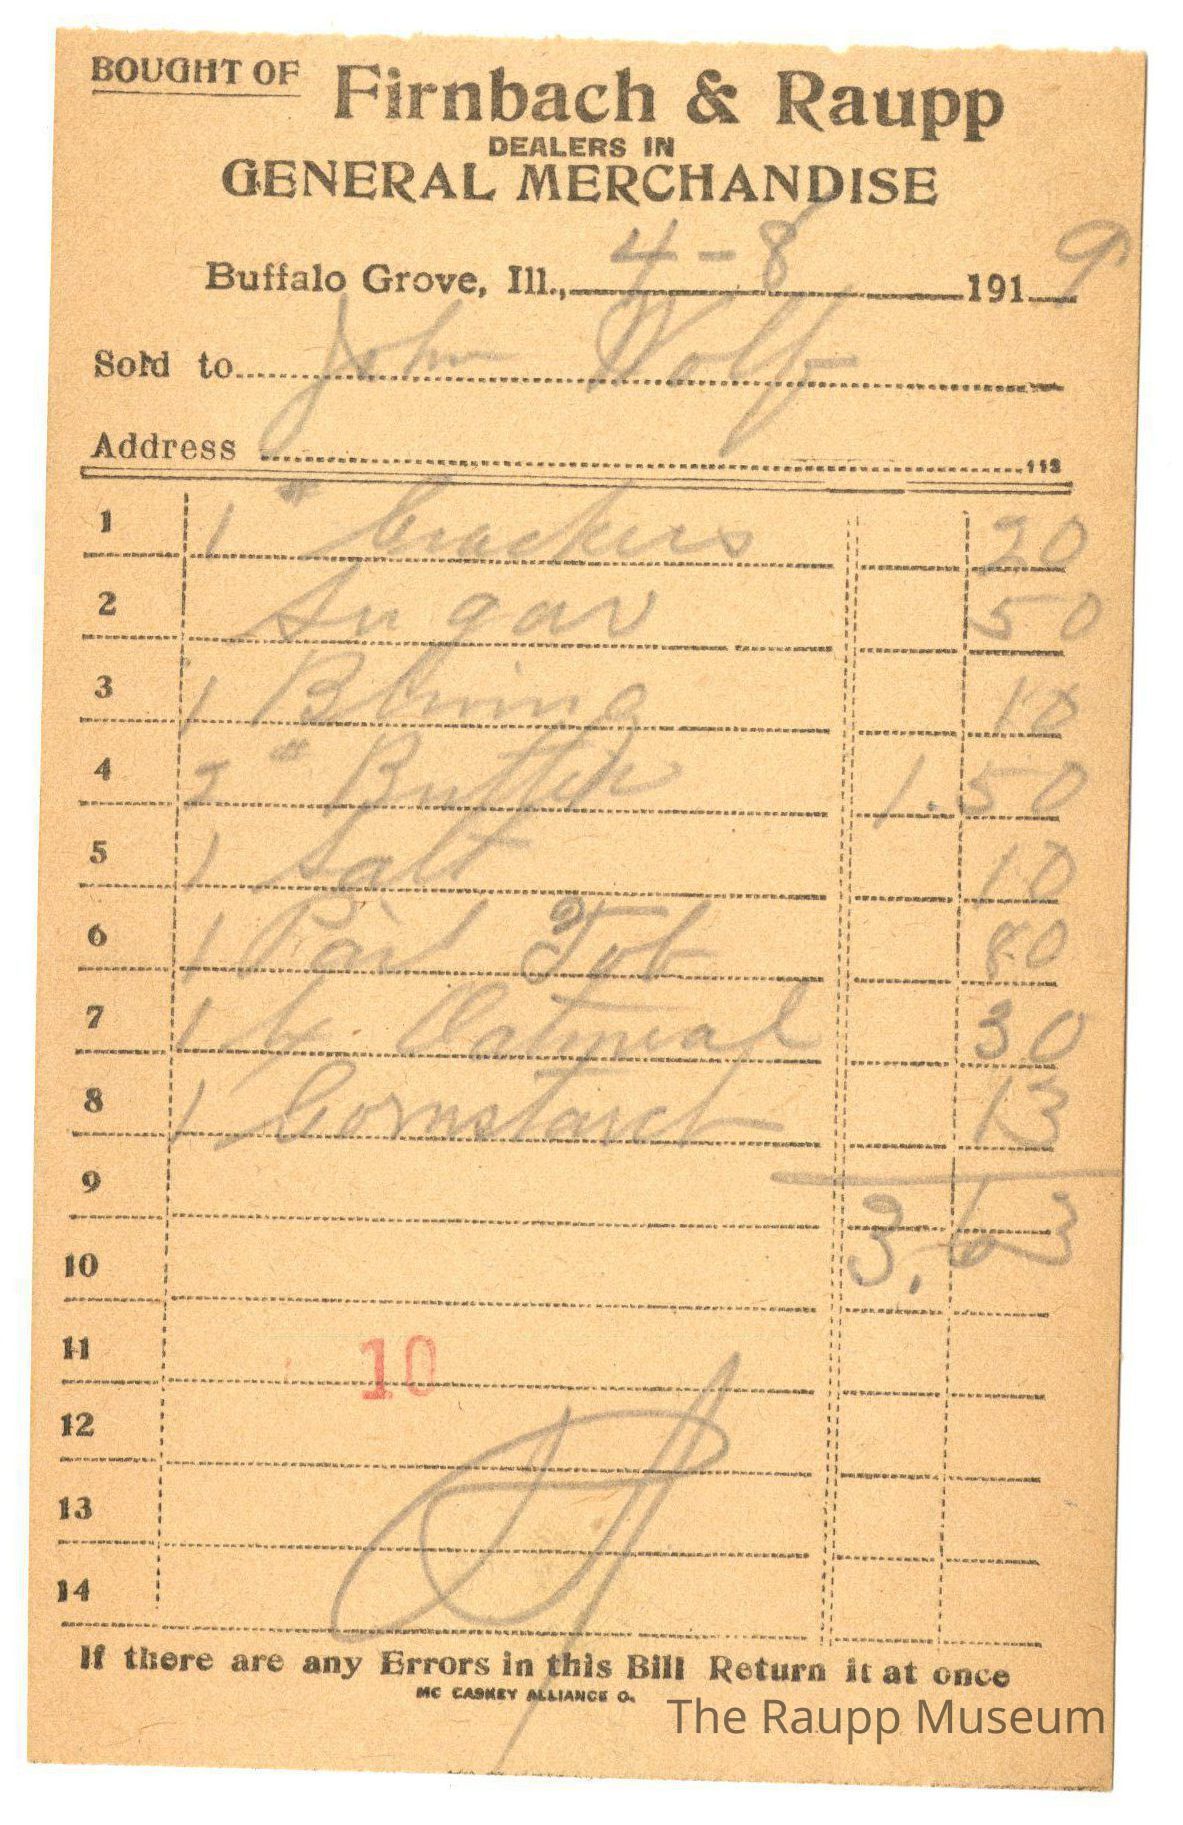 BOUGHT OF Firnbach & Raupp
DEALERS IN
GENERAL MERCHANDISE
Buffalo Grove, Ill., 4-8 1919
Sold to John Wolf
Address 113
1 1 # Crackers 20
2 Sugar 50
3 1 Bluing 10
4 # Butter 1.50
5 1 Salt 10
6 1 Pail 80
7 1 Oatmeal 30
8 1 Cornstarch 13
9 3.63
10
11 10
12
13
14
If there are any Errors in this Bill Return it at once
MC CASKEY ALLIANCE O.
The Raupp Museum